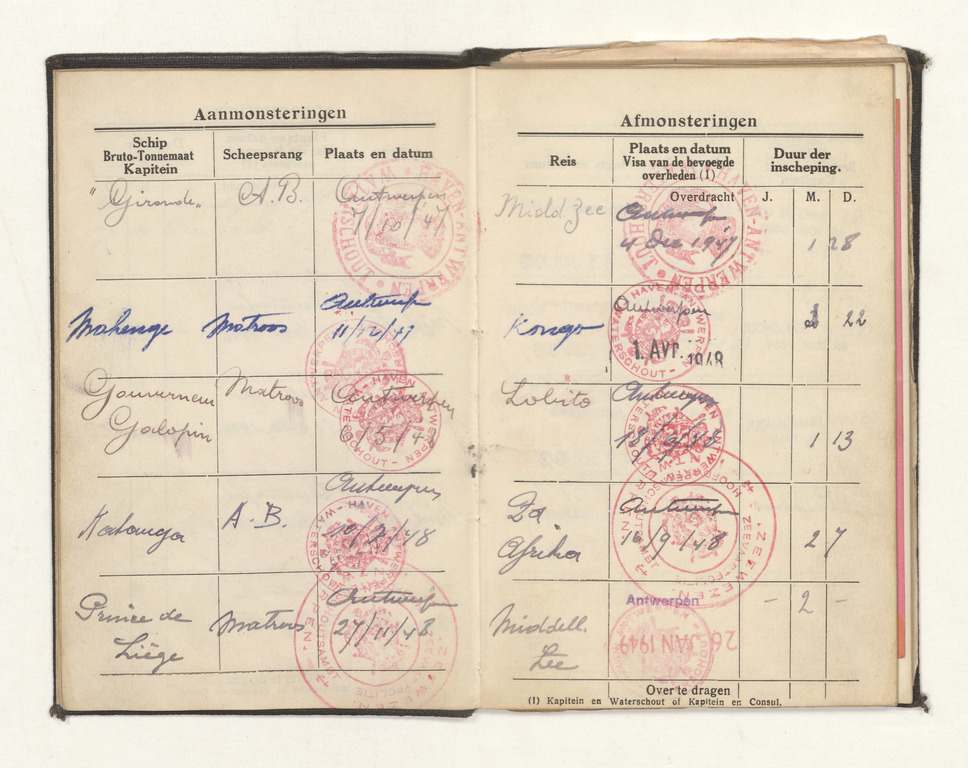 Aanmonsteringen
Schip
Bruto-Tonnemaat
Kapitein
Scheepsrang
Plaats en datum
"Gironde"
A.B.
Antwerpen
7/10/47
Mahenge
Matroos
Antwerp
11/12/47
Gouverneur
Galopin
Matroos
Antwerpen
Katanga
A.B.
Antwerpen
Prince de
Liège
Matroos
Antwerp
27/11/48
Afmonsteringen
Reis
Plaats en datum
Visa van de bevoegde
overheden (1)
Duur der
inscheping.
Overdracht
J.
M.
D.
Midd Zee
Antwerp
4 Dec 1947
1 28
Kongo
Antwerpen
1. Avr. 1948
22
Lobito
Antwerpen
1 13
Zd
Afrika
Antwerp
16/9/48
2 7
Middell.
Zee
Antwerpen
26 JAN 1949
- 2 -
Over te dragen
(1) Kapitein en Waterschout of Kapitein en Consul.